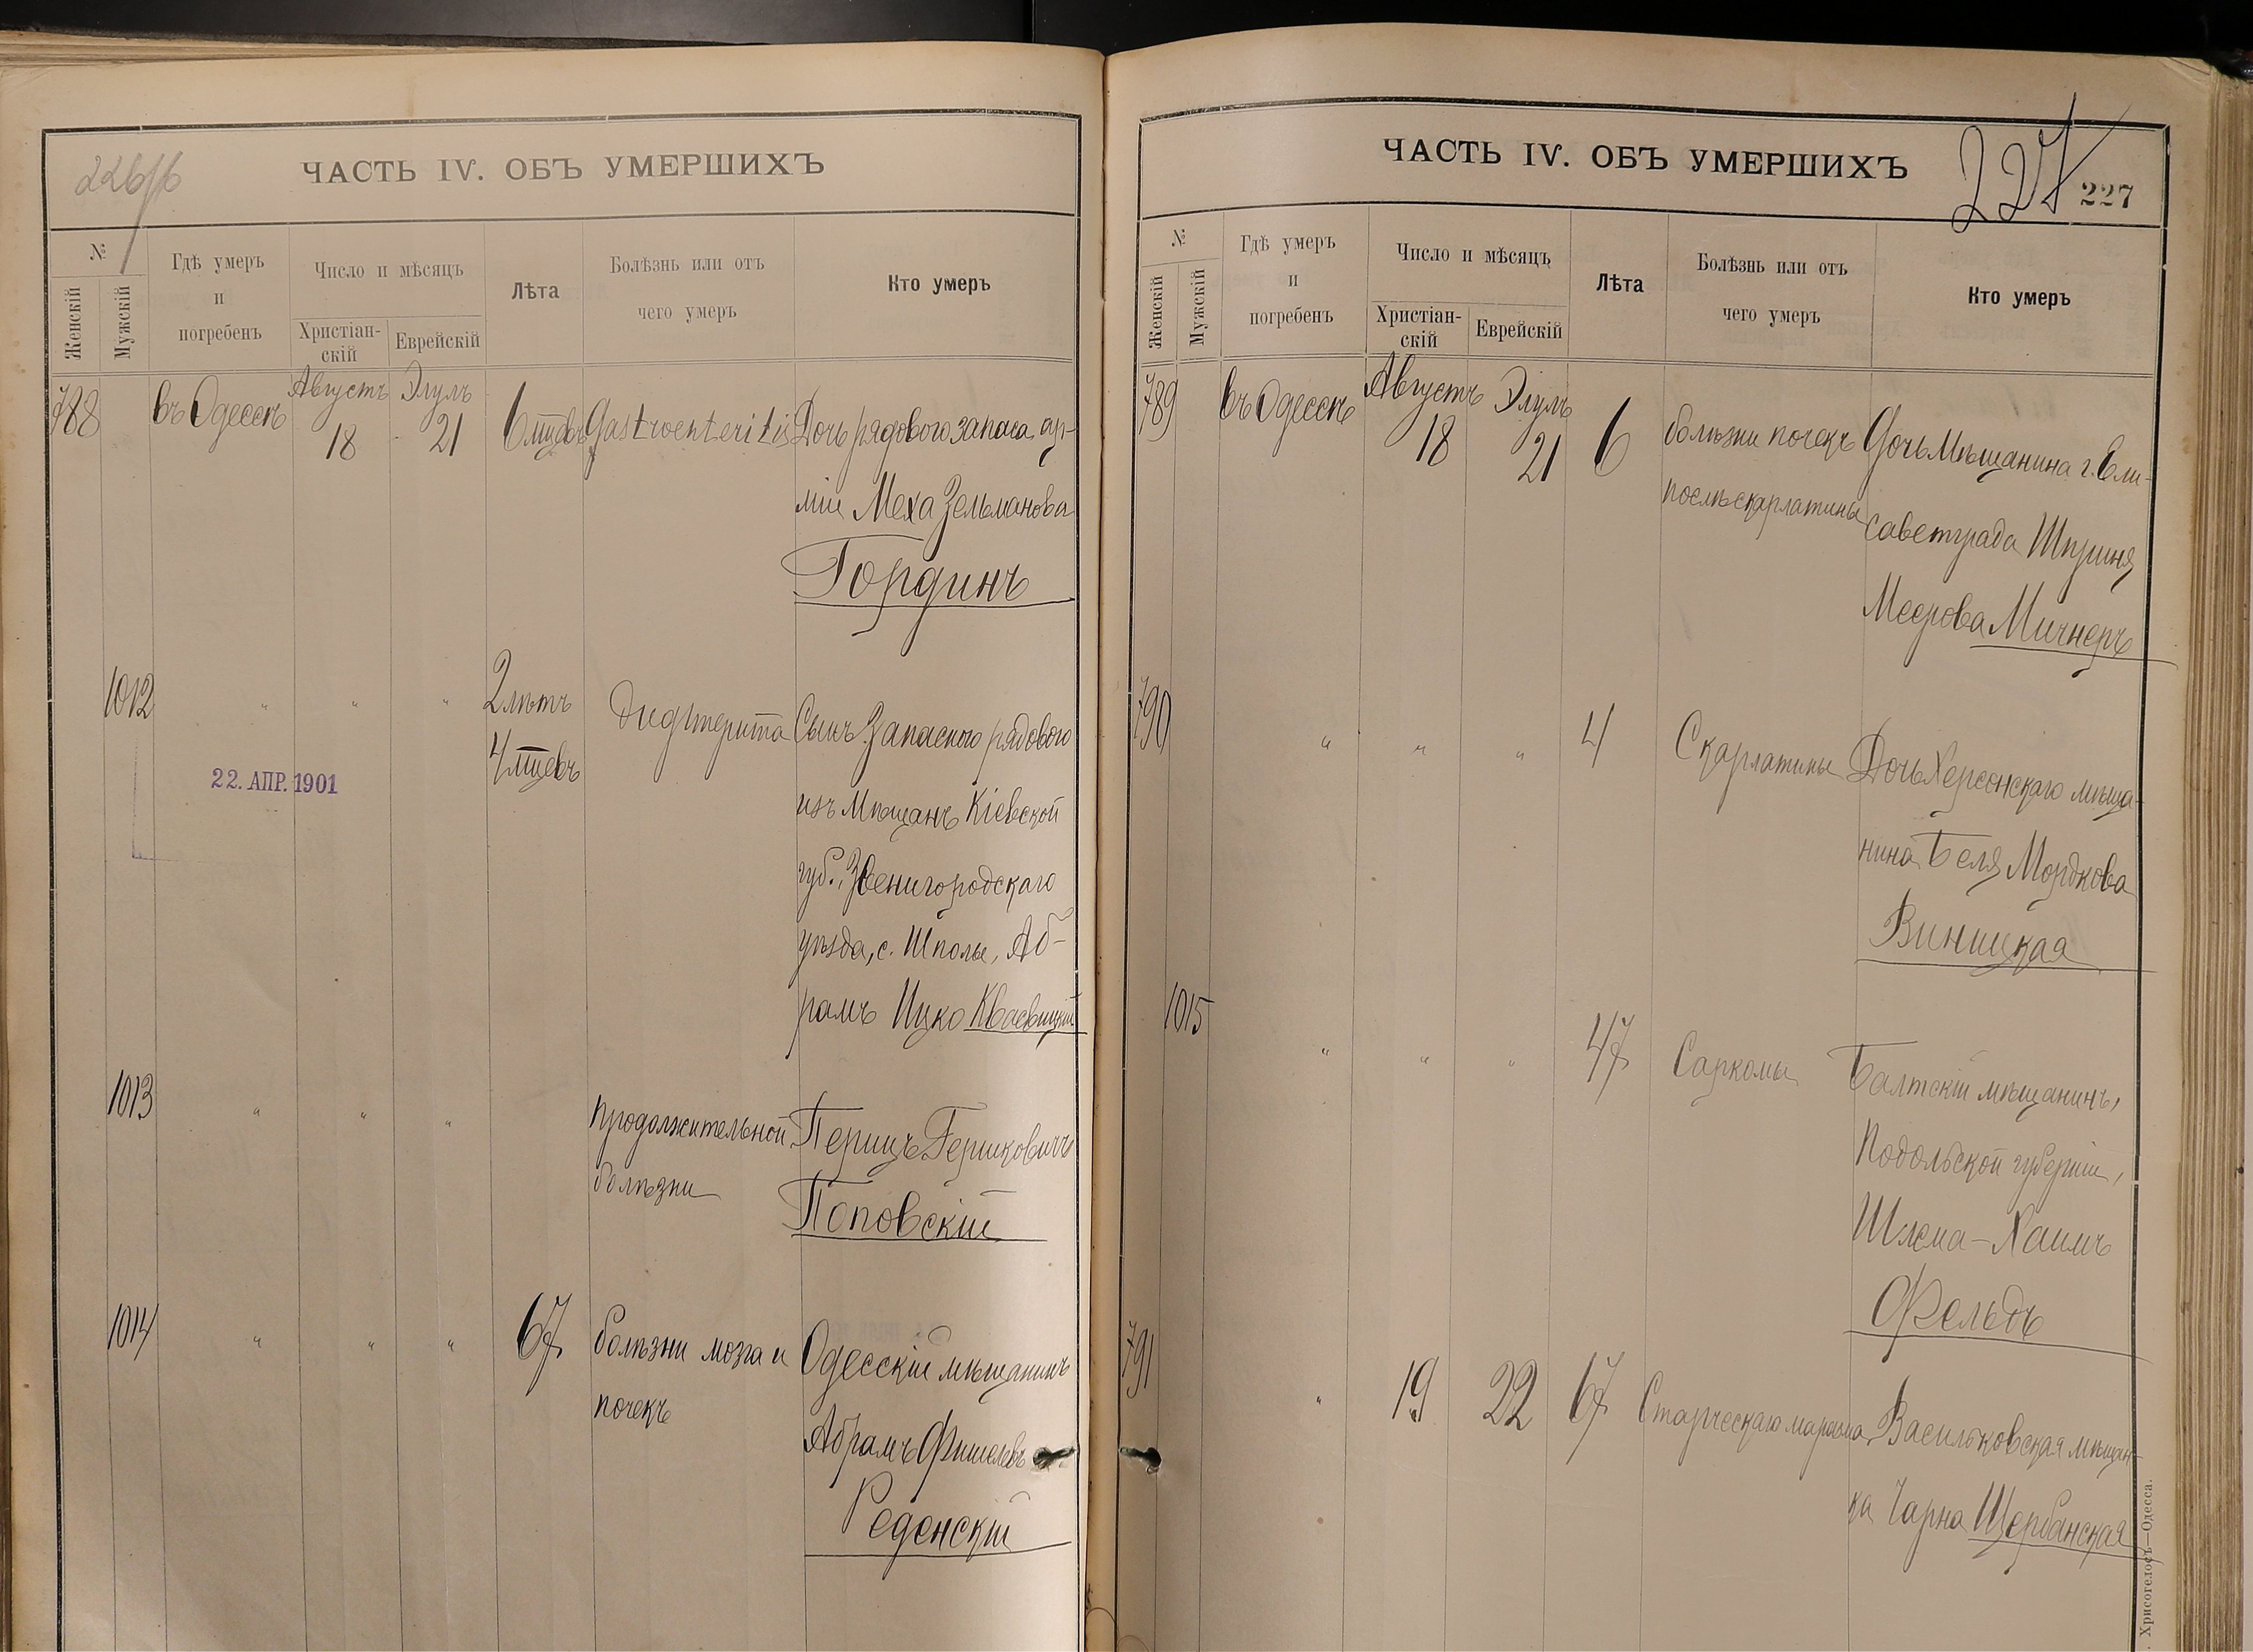 226об
ЧАСТЬ IV. ОБЪ УМЕРШИХЪ
№
Женскій
Мужскій
Гдѣ умеръ
и
погребенъ
Число и мѣсяцъ
Христіан-
скій
Еврейскій
Лѣта
Болѣзнь или отъ
чего умеръ
Кто умеръ
788 въ Одессѣ Августъ 18 Элулъ 21 6 мцевъ Gastroenteritis Дочь рядового запаса ар-
міи Меха Зельманова
Гординъ
1012 " " " 2 лѣтъ
4 мцевъ
Дифтерита
Сынъ запасного рядового
изъ мѣщанъ Кіевской
губ., Звенигородскаго
уѣзда, с. Шполы, Аб-
рамъ Ицко
22. АПР. 1901
1013 " " " продолжительной
болѣзни
Перицъ Гершковичъ
Поповскій
1014 " " " 67 болѣзни мозга и
почекъ
Одесскій мѣщанинъ
Абрамъ Фишелевъ
Реденскій
ЧАСТЬ IV. ОБЪ УМЕРШИХЪ
227
227
№
Женскій
Мужскій
Гдѣ умеръ
и
погребенъ
Число и мѣсяцъ
Христіан-
скій
Еврейскій
Лѣта
Болѣзнь или отъ
чего умеръ
Кто умеръ
789 въ Одессѣ Августъ 18 Элулъ 21 6 болѣзни почекъ
послѣ скарлатины
Дочь мѣщанина г. Ели-
саветграда Шприня
Меерова Мичнеръ
790 " " " 4 Скарлатины Дочь Херсонскаго мѣща-
нина Беля Мордкова
Виницкая
1015 " " " 47 Саркомы Балтскій мѣщанинъ,
Подольской губерніи,
Шлема-Хаимъ
Фельдъ
791 " 19 22 67 Старческаго маразма Васильковская мѣщан-
ка Чарна Щербанская
. Хрисогелосъ—Одесса.